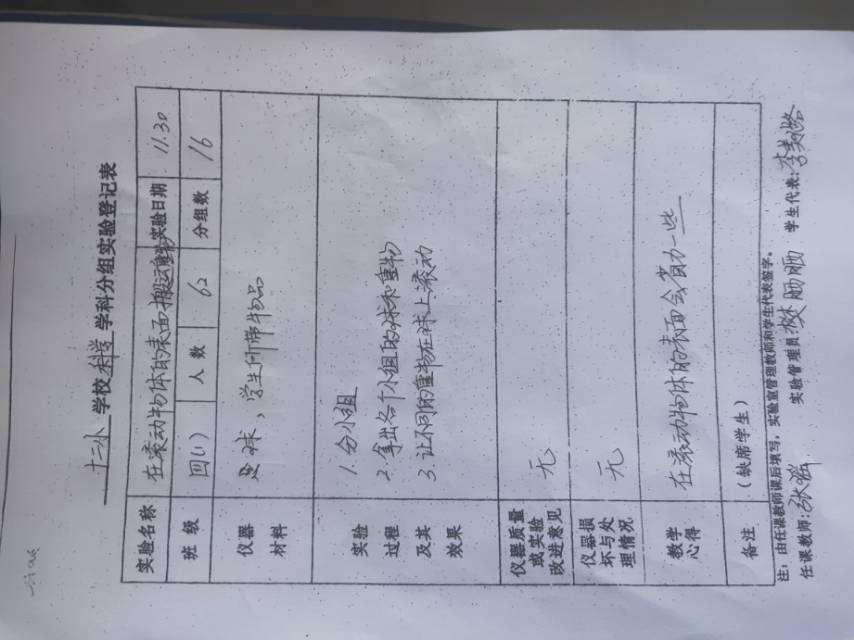 十二小学校科学学科分组实验登记表
实验名称 在滚动物体的表面搬运重物 实验日期 11.30
班级 四(1) 人数 62 分组数 16
仪器材料 足球，学生所带物品
实验过程及其效果
1. 分小组
2. 拿出各个小组的球和重物
3. 让不同的重物在球上滚动
仪器质量或实验改进意见 无
仪器损坏与处理情况 无
教学心得 在滚动物体的表面会省力一些
备注 (缺席学生)
注：由任课教师课后填写，实验室管理教师和学生代表签字。
任课教师:张 实验管理员 樊丽丽 学生代表:李